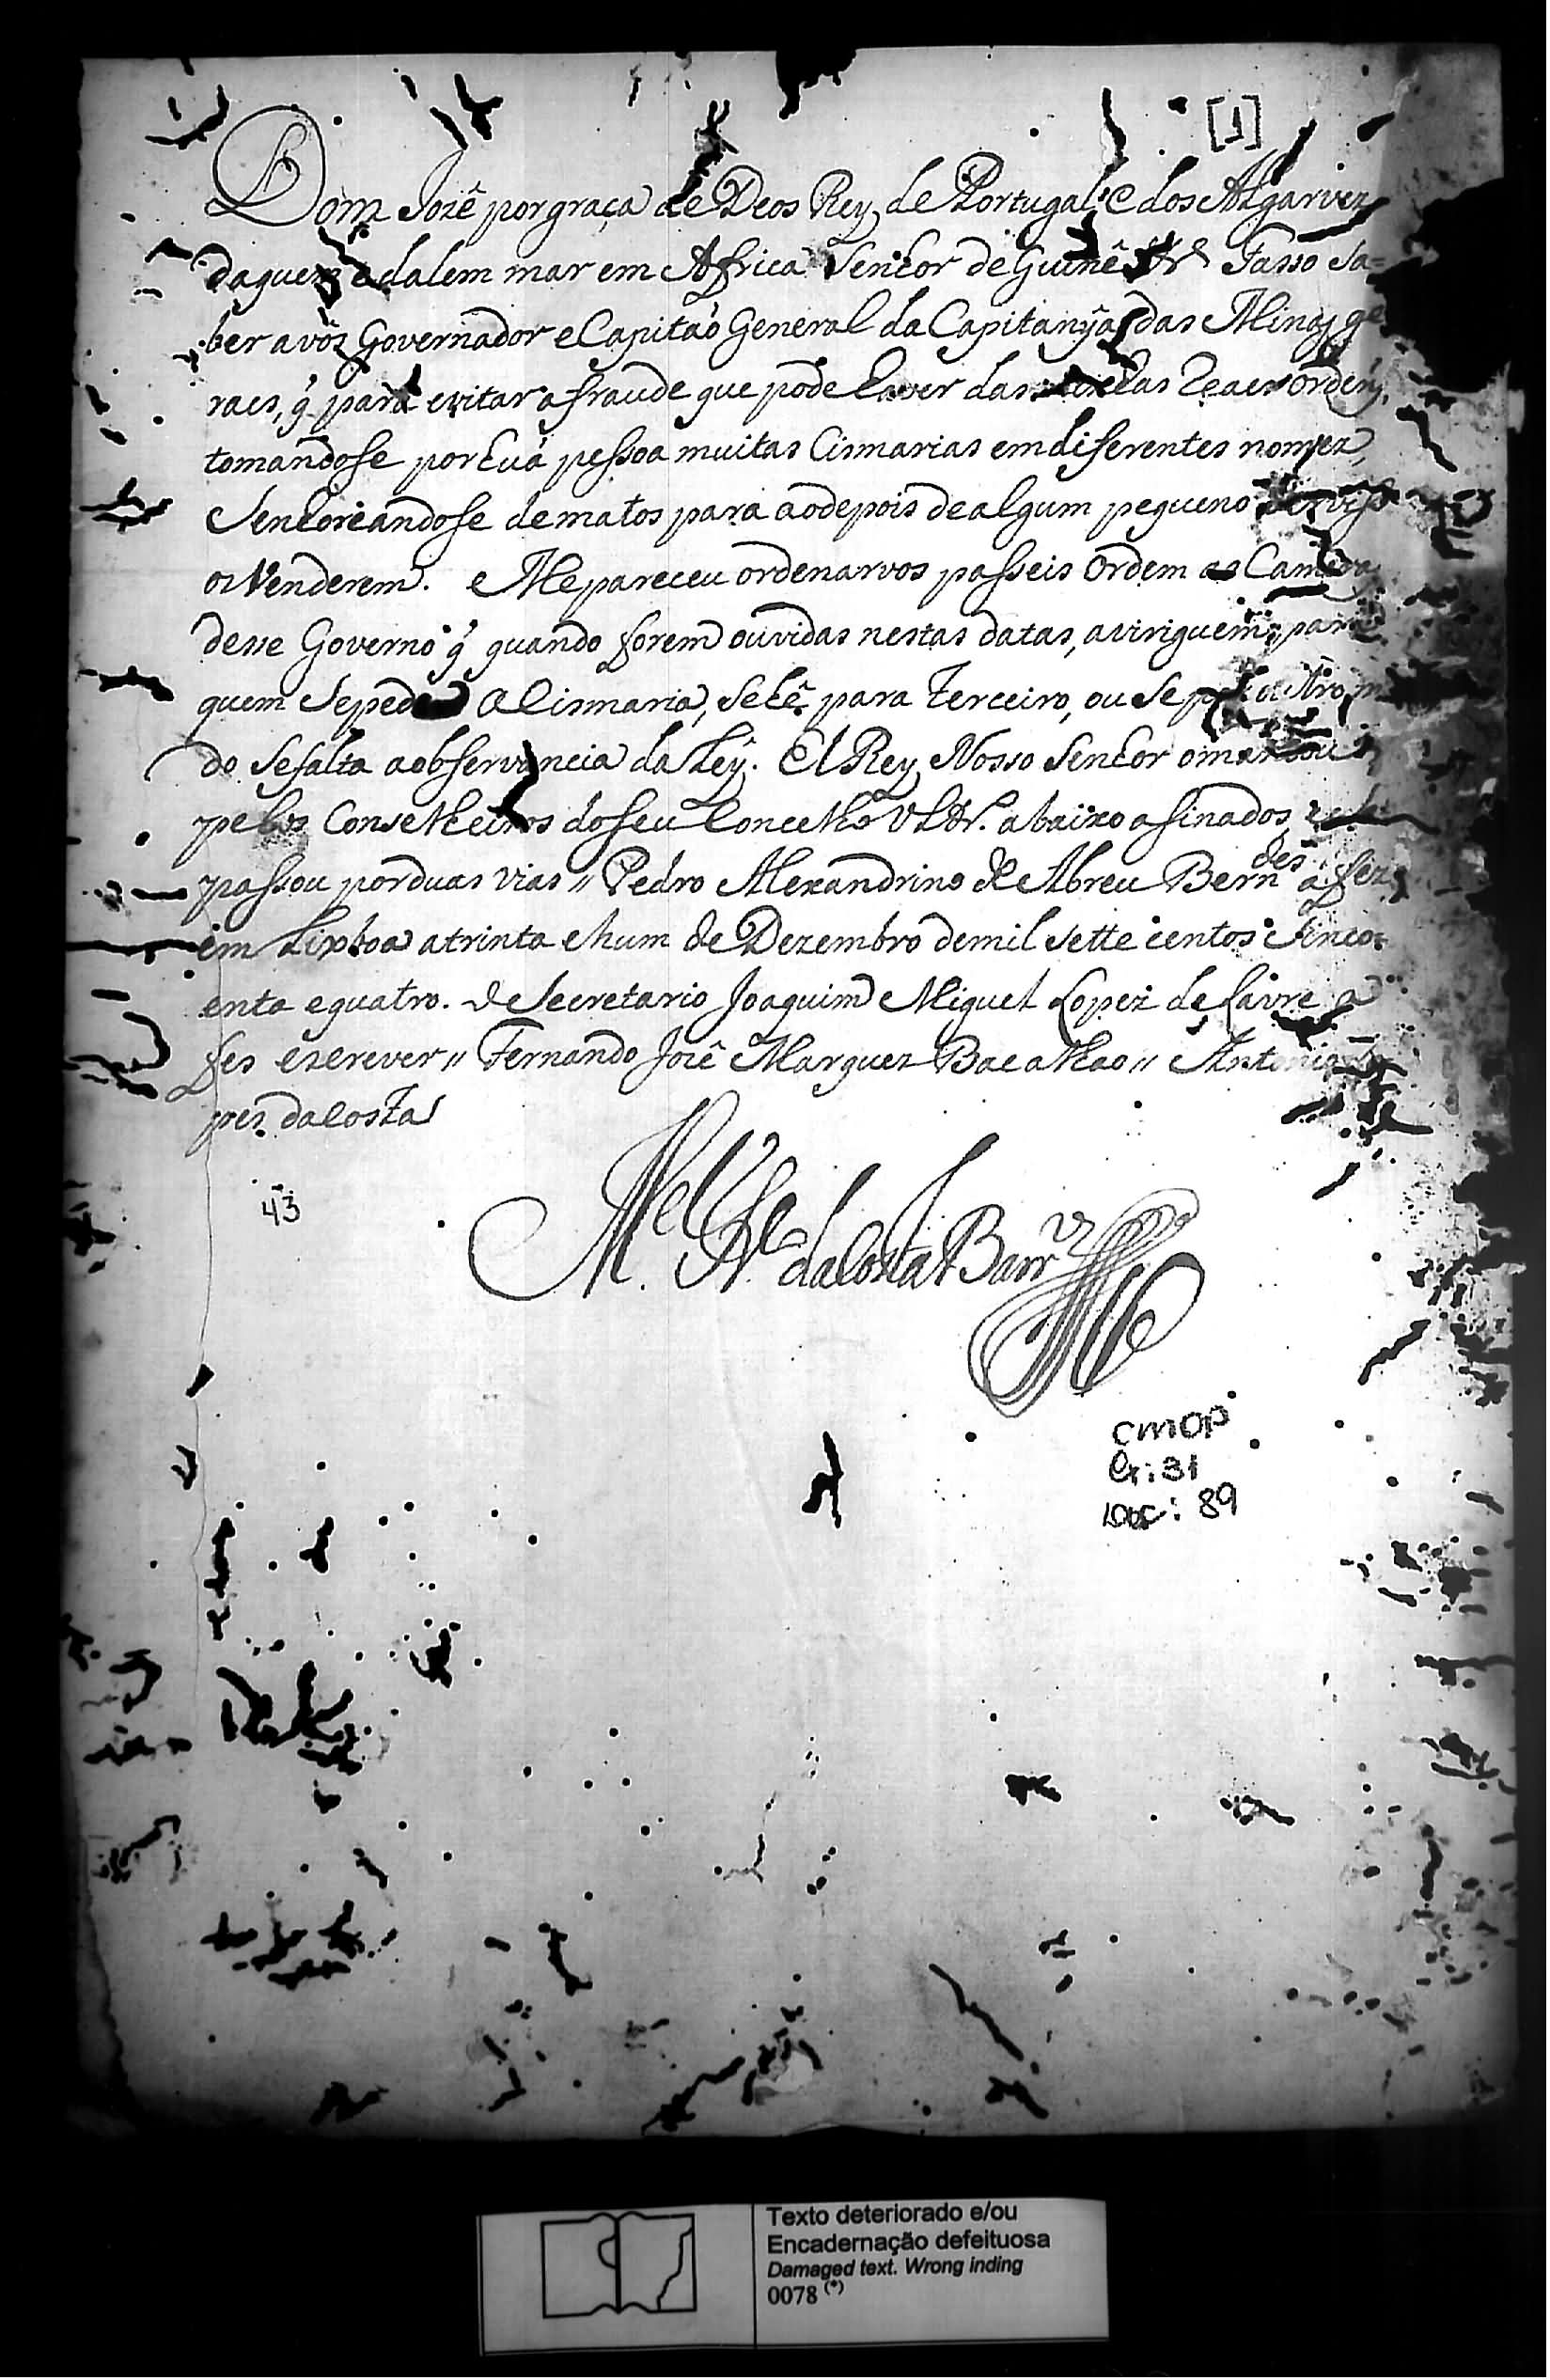 [1]
Dom Jozê por graça de Deos Rey de Portugal e dos Algarvez
daquem e dalem mar em Africa Senhor de Guinê &ª Fasso Sa=
ber avôs Governador e Capitaõ General da Capitanŷa das Minas ge
raes, q̃ para evitar a fraude que pode haver das Reaes Ordeñs,
tomandose por huá pessoa muitas Cismarias em diferentes nomez,
Senhoreandose de matos para ao depois de algum pequeno serviso
os Venderem. e Me pareceu ordenarvos passeis Ordem as Camaras
desse Governo q̃ quando forem ouvidas nestas datas, aviriguem, para
quem Se pede a Cismaria, Se hê para Terceiro, ou Se por
do Se falta a observancia da Ley. El Rey Nosso Senhor o mandou
pelos Conselheiros do Seu Concelho Vltr. abaixo asinados, e Se
passou por duas vias // Pedro Alexandrino de Abreu Bernᵈᵉˢ a fez
em Lixboa a trinta e hum de Dezembro de mil Sette centos e Sinco=
enta e quatro. O Secretario Joaquim Miguel Lopez de Lavre a
fes escrever // Fernando Jozê Marquez Bacalhao // Antonio Lo
pes da Costa
43
CMOP
Cx: 31
Doc: 89
Texto deteriorado e/ou
Encadernação defeituosa
Damaged text. Wrong inding
0078 (*)